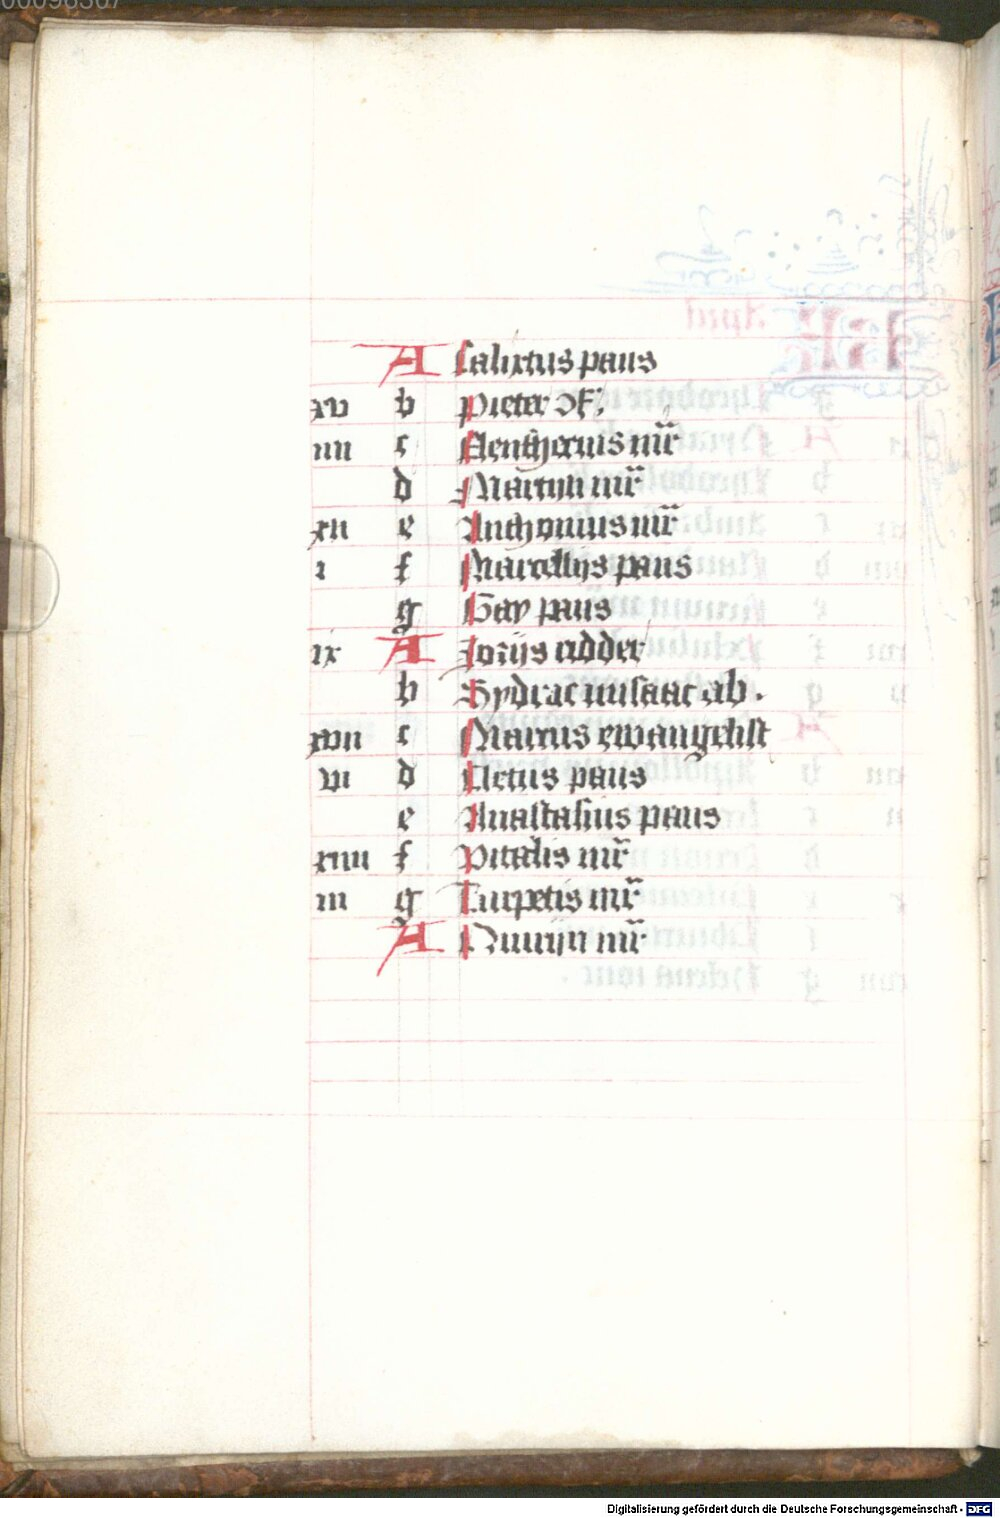 A Calixtus paus
xv b Pieter dk̄;
iiii c Aentherus mr̄
d Martyn mr̄
xii e Anthonius mr̄
i f Marcellijs paus
g Gay paus
ix A Jorijs ridder
b Sydrac
c Marcus ewangelist
vi d Cletus paus
e Anastasius paus
xiiii f Vitalis mr̄
iii g Turpetis mr̄
A Quirijn mr̄
Digitalisierung gefördert durch die Deutsche Forschungsgemeinschaft - DFG